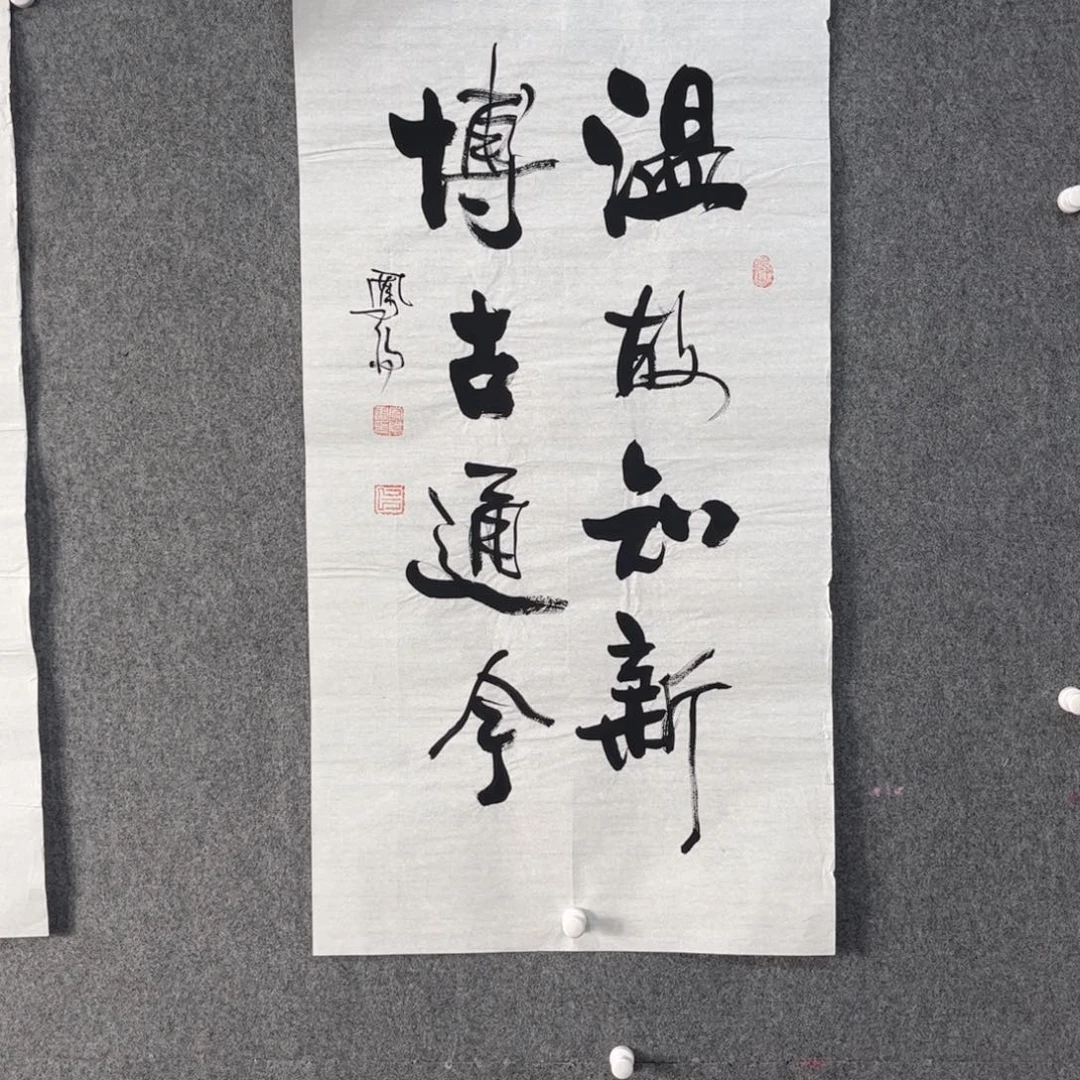 温故知新
博古通今